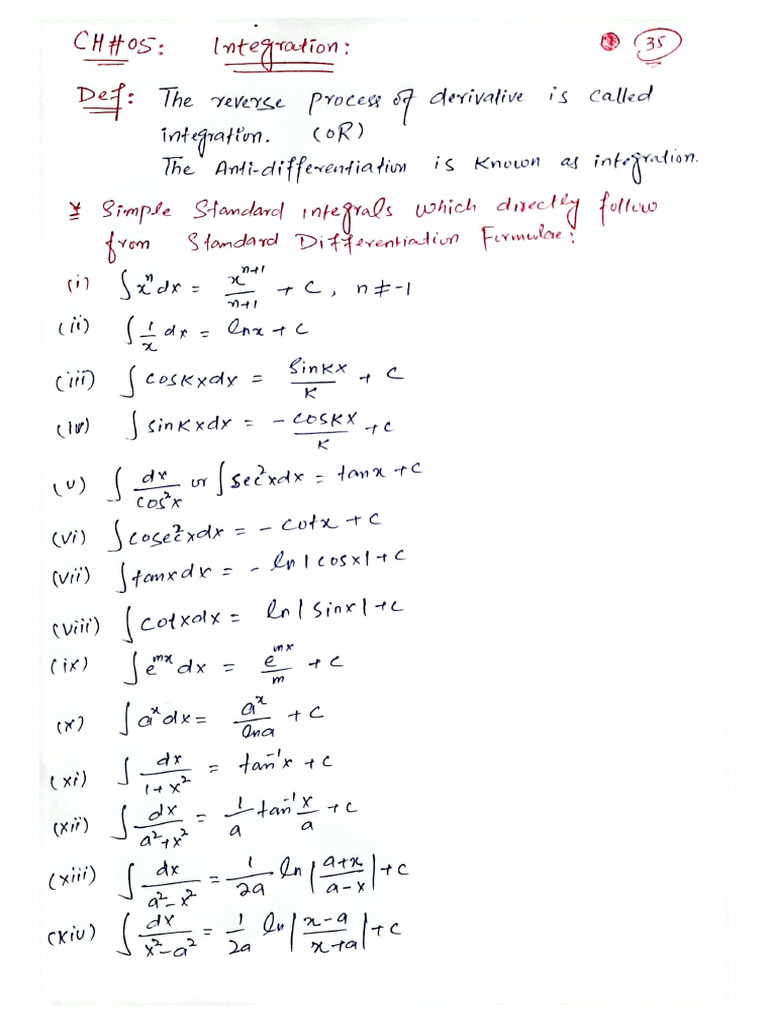 CH#05: Integration: 35
Def: The reverse process of derivative is called
integration. (OR)
The Anti-differentiation is known as integration.
Simple Standard integrals which directly follow
from Standard Differentiation Formulae:
(i) ∫xⁿdx = xⁿ⁺¹/n+1 + C, n≠-1
(ii) ∫1/x dx = lnx + C
(iii) ∫coskxdx = sinkx/k + C
(iv) ∫sinkxdx = -coskx/k + C
(v) ∫dx/cos²x or ∫sec²xdx = tanx + C
(vi) ∫cosec²xdx = -cotx + C
(vii) ∫tanxdx = -ln|cosx| + C
(viii) ∫cotxdx = ln|sinx| + C
(ix) ∫eᵐˣdx = eᵐˣ/m + C
(x) ∫aˣdx = aˣ/lna + C
(xi) ∫dx/1+x² = tan⁻¹x + C
(xii) ∫dx/a²+x² = 1/a tan⁻¹x/a + C
(xiii) ∫dx/a²-x² = 1/2a ln|a+x/a-x| + C
(xiv) ∫dx/x²-a² = 1/2a ln|x-a/x+a| + C